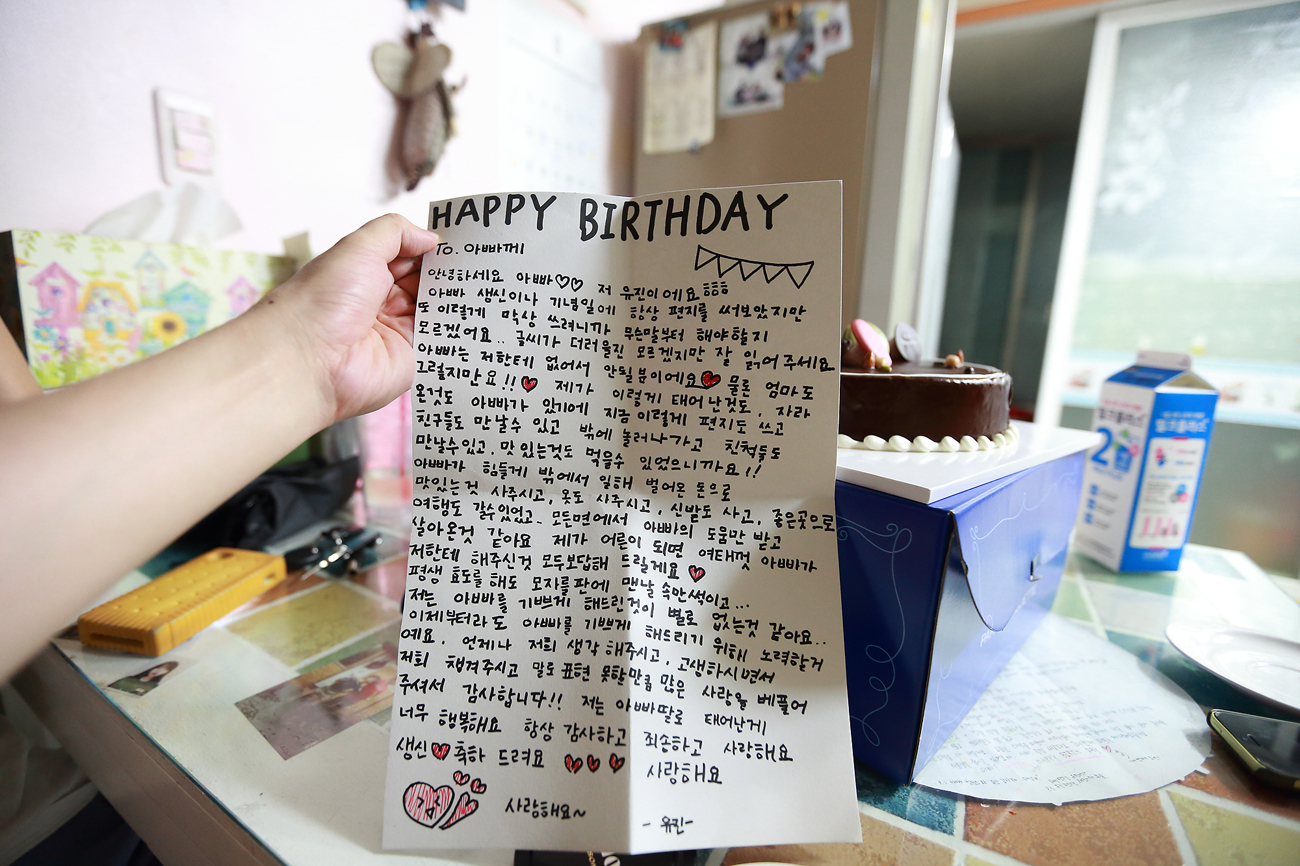 HAPPY BIRTHDAY
To. 아빠께
안녕하세요 아빠♡♡ 저 유진이에요
아빠 생신이나 기념일에 항상 편지를 써보았지만
또 이렇게 막상 쓰려니까 무슨말부터 해야할지
모르겠어요.. 글씨가 더러울진 모르겠지만 잘 읽어주세요
아빠는 저한테 없어서 안될분이에요♥ 물론 엄마도
그렇지만요!!♥ 제가 이렇게 태어난것도, 자라
온것도 아빠가 있기에 지금 이렇게 편지도 쓰고
친구들도 만날수 있고 밖에 놀러나가고 친척들도
만날수있고, 맛있는것도 먹을수 있었으니까요!!
아빠가 힘들게 밖에서 일해 벌어온 돈으로
맛있는것 사주시고, 옷도 사주시고, 신발도 사고, 좋은곳으로
여행도 갈수있었고.. 모든면에서 아빠의 도움만 받고
살아온것 같아요 제가 어른이 되면 여태껏 아빠가
저한테 해주신것 모두보답해 드릴게요♥
평생 효도를 해도 모자를판에 맨날 속만썩이고...
저는 아빠를 기쁘게 해드린것이 별로 없는것 같아요..
이제부터라도 아빠를 기쁘게 해드리기 위해 노력할거
예요. 언제나 저희 생각 해주시고, 고생하시면서
저희 챙겨주시고 말로 표현 못할만큼 많은 사랑을 베풀어
주셔서 감사합니다!! 저는 아빠딸로 태어난게
너무 행복해요 항상 감사하고 죄송하고 사랑해요
생신♥축하 드려요 ♥♥♥ 사랑해요
사랑해요~
- 유진-